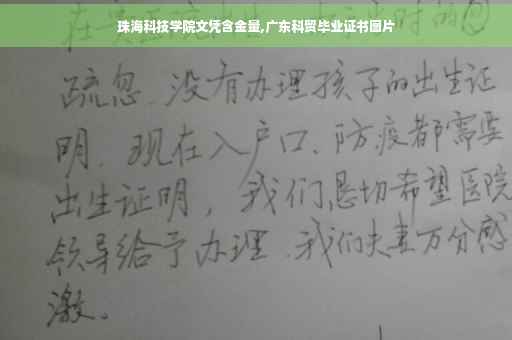 珠海科技学院文凭含金量,广东科贸毕业证书图片
疏忽、没有办理孩子的出生证
明。现在入户口、防疫都需要
出生证明，我们恳切希望医院
领导给予办理，我们夫妻万分感
激。